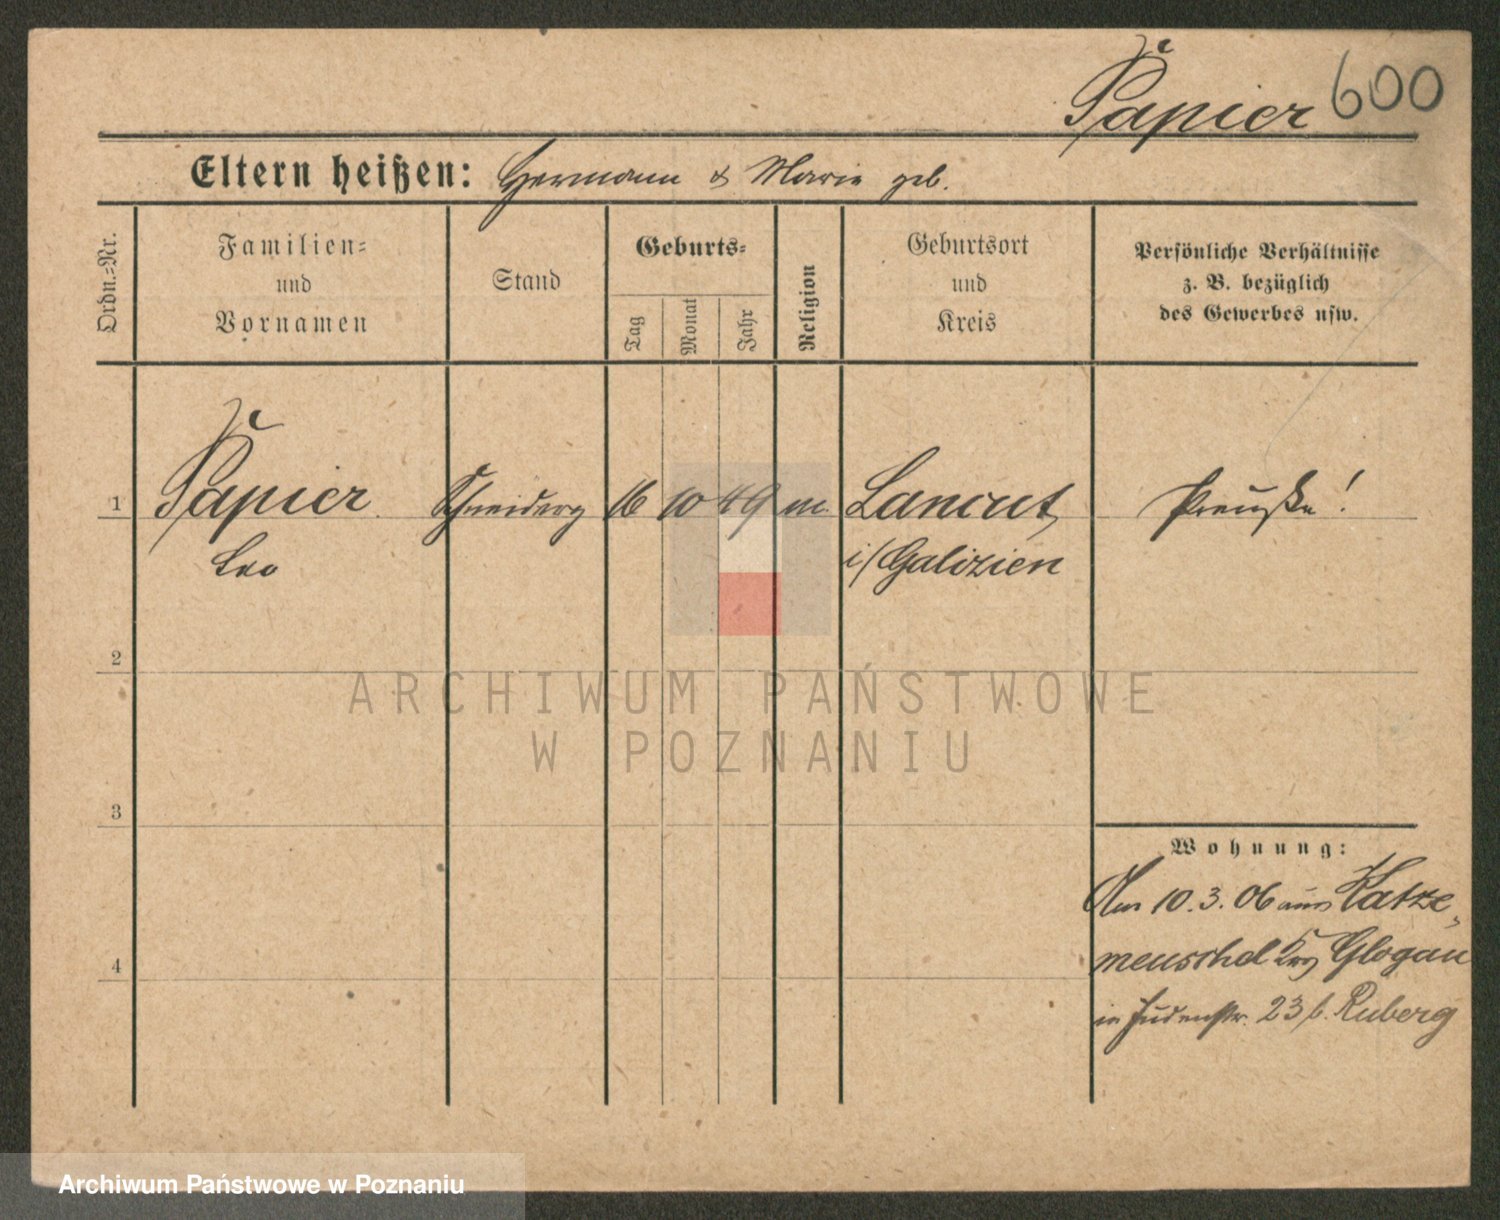 Papier 600
Eltern heißen: Hermann & Marie geb.
Ordn.=Nr.
Familien=
und
Vornamen
Stand
Geburts=
Tag
Monat
Jahr
Religion
Geburtsort
und
Kreis
Persönliche Verhältnisse
z. B. bezüglich
des Gewerbes usw.
1 Papier Schneiderg 16 10 49 m. Lancut Preuße!
Leo i/Galizien
2
3
Wohnung:
Am 10.3.06 aus
4
Glogau
in Judenstr. 23 b. Ruberg
ARCHIWUM PAŃSTWOWE
W POZNANIU
Archiwum Państwowe w Poznaniu